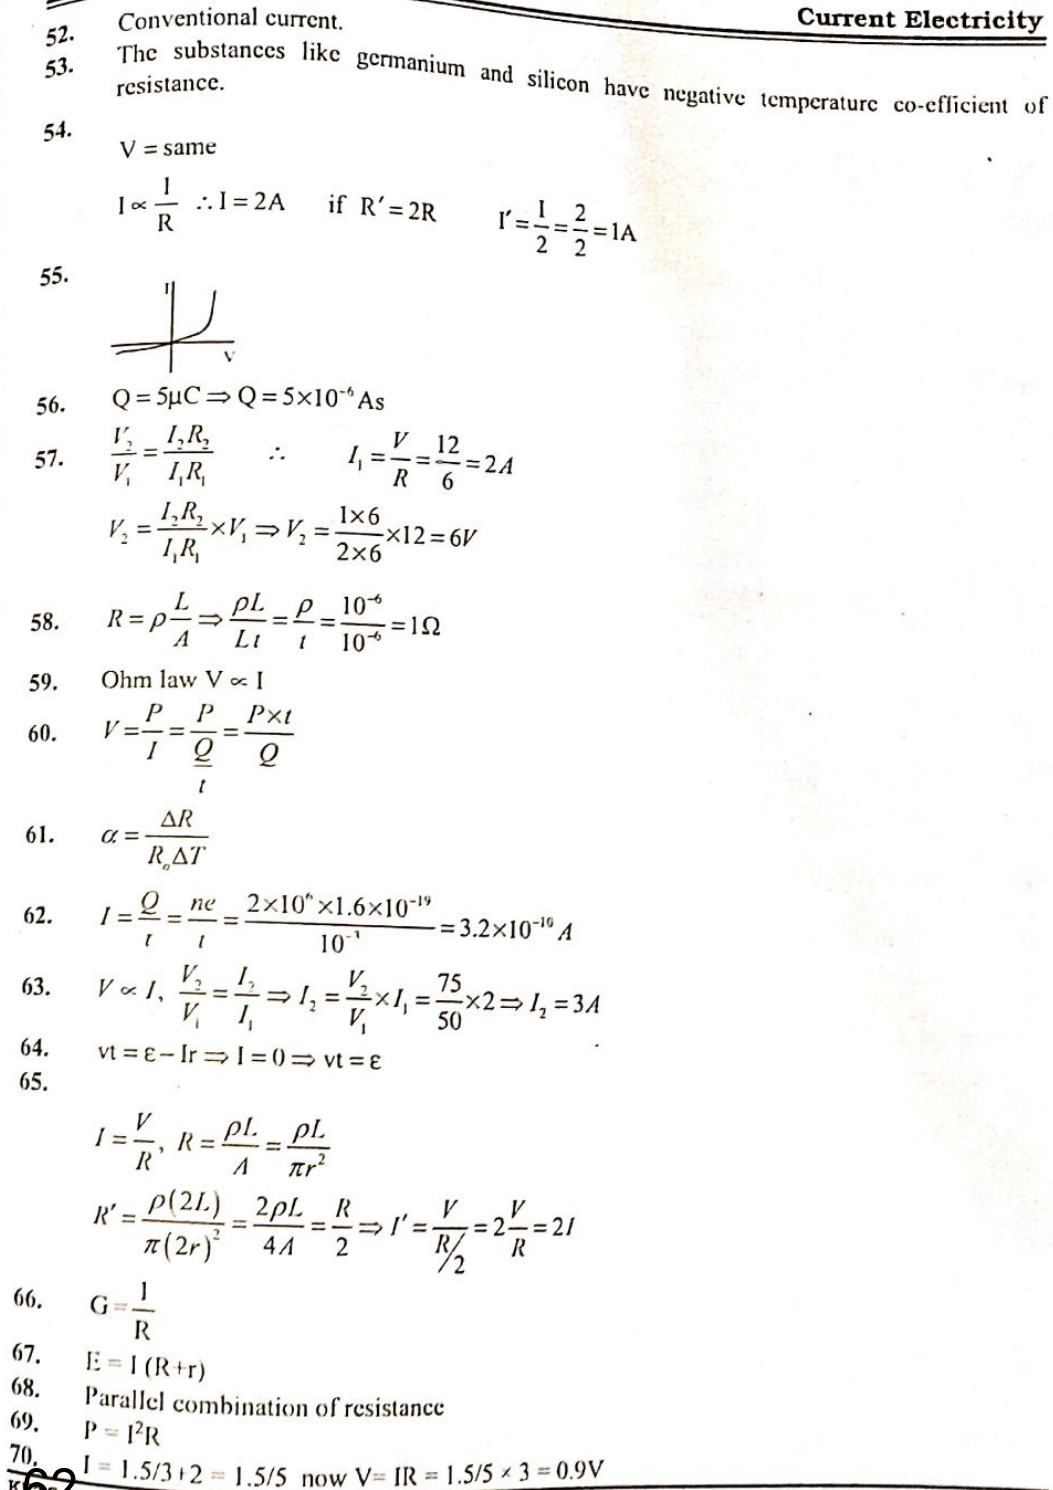 Current Electricity
52. Conventional current.
53. The substances like germanium and silicon have negative temperature co-efficient of
resistance.
54.
V = same
I ∝ 1/R ∴ I = 2A if R′ = 2R I′ = I/2 = 2/2 = 1A
55.
I
V
56. Q = 5μC ⇒ Q = 5×10⁻⁶ As
57. V₂/V₁ = I₂R₂/I₁R₁ ∴ I₁ = V/R = 12/6 = 2A
V₂ = I₂R₂/I₁R₁ ×V₁ ⇒ V₂ = 1×6/2×6 ×12 = 6V
58. R = ρ L/A ⇒ ρL/Lt = ρ/t = 10⁻⁶/10⁻⁶ = 1Ω
59. Ohm law V ∝ I
60. V = P/I = P/(Q/t) = P×t/Q
61. α = ΔR/R₀ΔT
62. I = Q/t = ne/t = 2×10⁶ ×1.6×10⁻¹⁹/10⁻³ = 3.2×10⁻¹⁰ A
63. V ∝ I, V₂/V₁ = I₂/I₁ ⇒ I₂ = V₂/V₁ ×I₁ = 75/50 ×2 ⇒ I₂ = 3A
64. vt = ε − Ir ⇒ I = 0 ⇒ vt = ε
65.
I = V/R, R = ρL/A = ρL/πr²
R′ = ρ(2L)/π(2r)² = 2ρL/4A = R/2 ⇒ I′ = V/(R/2) = 2 V/R = 2I
66. G = 1/R
67. E = I (R+r)
68. Parallel combination of resistance
69. P = I²R
70. I = 1.5/3+2 = 1.5/5 now V= IR = 1.5/5 × 3 = 0.9V
62